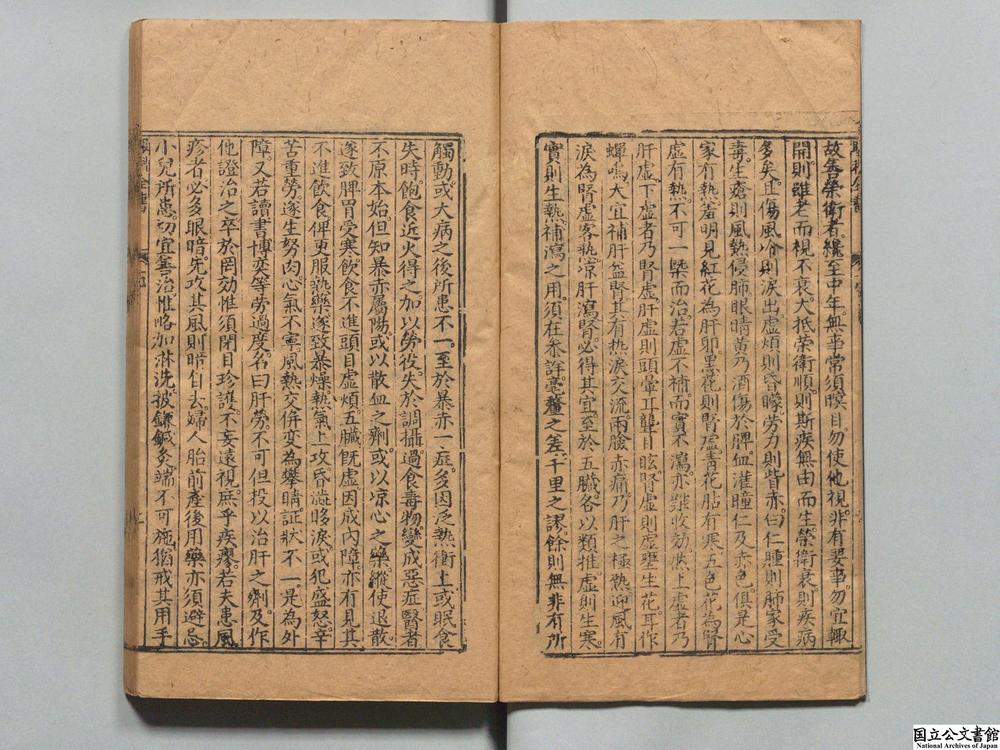 故善榮衛者纔至中年無事常須瞑目勿使他視非有要事勿宜輙
開則雖老而視不衰大抵榮衛順則斯疾無由而生榮衛衰則疾病
多矣且傷風冷則淚出虛煩則昏矇勞力則眥赤白仁腫則肺家受
毒生瘡則風熱侵肺眼睛黃乃酒傷於脾血灌瞳仁及赤色俱是心
家有熱羞明見紅花為肝卯黑花則腎虛青花胎有寒五色花為腎
虛有熱不可一槩而治若虛不補而實不瀉亦難收効然上虛者乃
肝虛下虛者乃腎虛肝虛則頭暈耳聾目眩腎虛則虛壅生花耳作
蟬鳴大宜補肝益腎其有熱淚交流兩臉赤痛乃肝之極熱迎風有
淚為腎虛客熱凉肝瀉腎必得其宜至於五臟各以類推虛則生寒
實則生熱補瀉之用須在叅詳毫釐之差千里之謬餘則無非有所
觸動或大病之後所患不一至於暴赤一症多因泛熱衝上或眠食
失時飽食近火得之加以勞役失於調攝過食毒物變成惡症醫者
不原本始但知暴赤屬陽或以散血之劑或以凉心之藥縱使退散
遂致脾胃受寒飲食不進頭目虛煩五臟旣虛因成內障亦有見其
不進飲食俾更服熱藥遂致暴燥熱氣上攻昏澁眵淚或犯盛怒辛
苦重勞遂生努肉心氣不寧風熱交併变為攀睛証狀不一是為外
障又若讀書博奕等勞過度名曰肝勞不可但投以治肝之劑及作
他證治之卒於罔効惟須閉目珍護不妄遠視庶乎疾瘳若夫患風
疹者必多眼暗先攻其風則暗自去婦人胎前產後用藥亦須避忌
小兒所患切宜善治惟略加淋洗披鐮鍼灸端不可施猶戒其用手
国立公文書館
National Archives of Japan